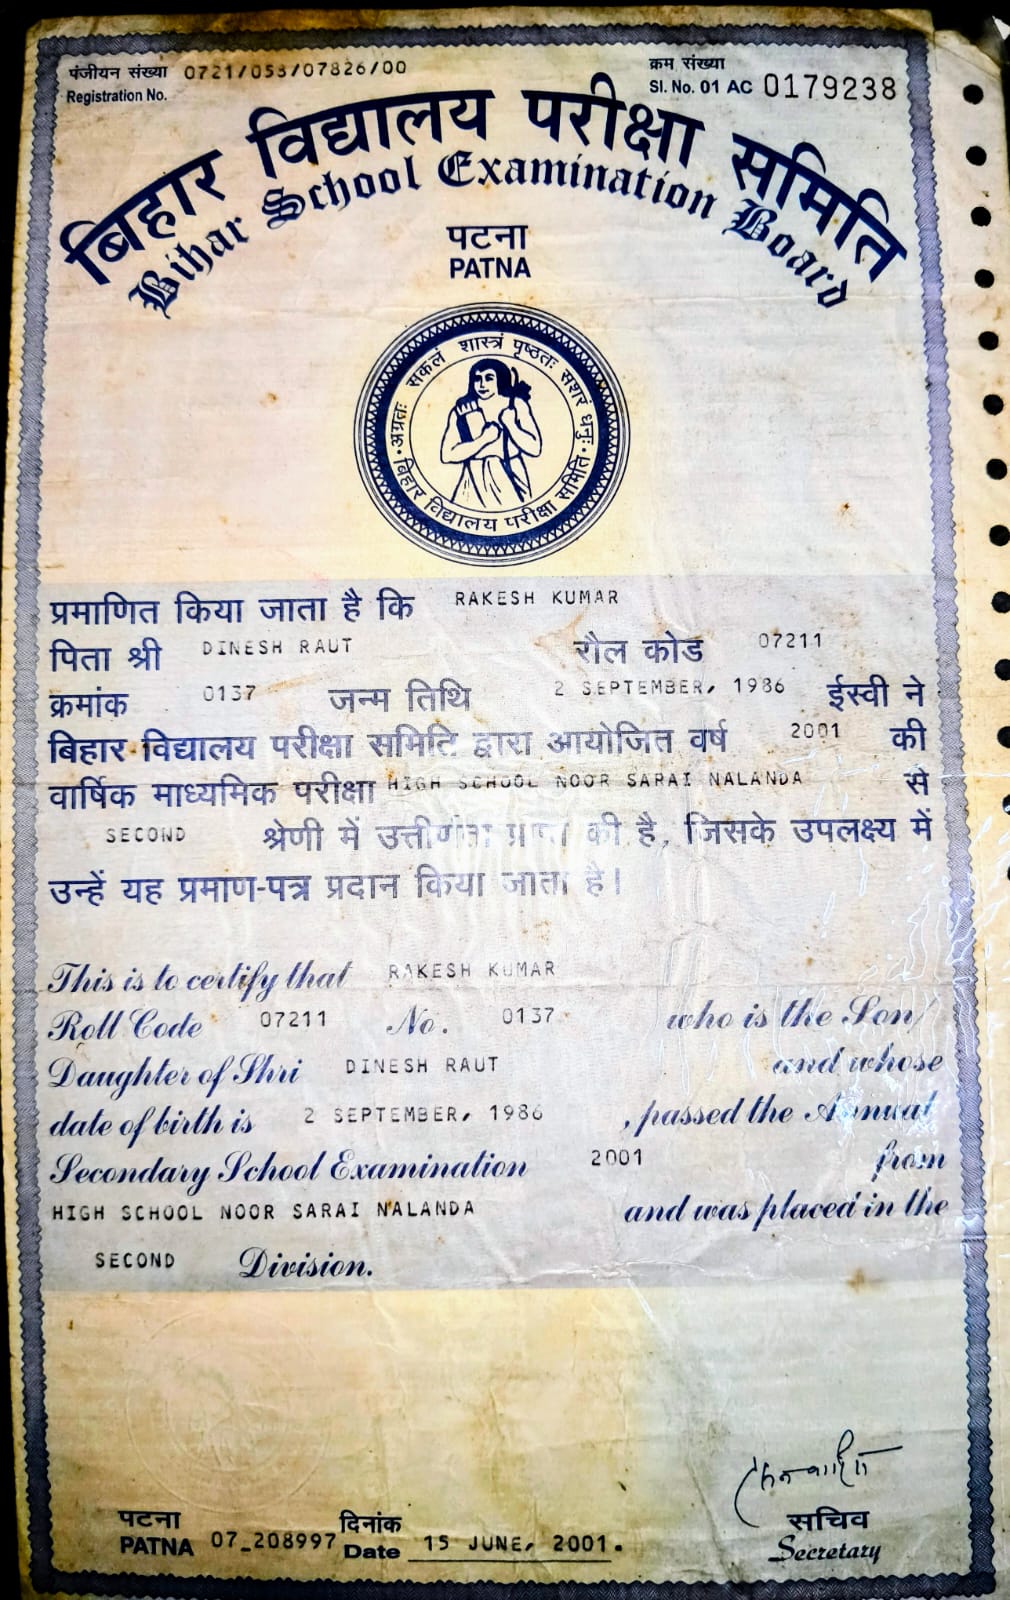 पंजीयन संख्या 0721/053/07826/00
Registration No.
क्रम संख्या
Sl. No. 01 AC 0179238
बिहार विद्यालय परीक्षा समिति
Bihar School Examination Board
पटना
PATNA
अग्रतः सकलं शास्त्रं पृष्ठतः सशरं धनुः
बिहार विद्यालय परीक्षा समिति
प्रमाणित किया जाता है कि RAKESH KUMAR
पिता श्री DINESH RAUT रौल कोड 07211
क्रमांक 0137 जन्म तिथि 2 SEPTEMBER, 1986 ईस्वी ने
बिहार विद्यालय परीक्षा समिति द्वारा आयोजित वर्ष 2001 की
वार्षिक माध्यमिक परीक्षा HIGH SCHOOL NOOR SARAI NALANDA से
SECOND श्रेणी में उत्तीर्णता प्राप्त की है, जिसके उपलक्ष्य में
उन्हें यह प्रमाण-पत्र प्रदान किया जाता है।
This is to certify that RAKESH KUMAR
Roll Code 07211 No. 0137 who is the Son/
Daughter of Shri DINESH RAUT and whose
date of birth is 2 SEPTEMBER, 1986 , passed the Annual
Secondary School Examination 2001 from
HIGH SCHOOL NOOR SARAI NALANDA and was placed in the
SECOND Division.
पटना
PATNA 07_208997
दिनांक
Date 15 JUNE, 2001.
सचिव
Secretary